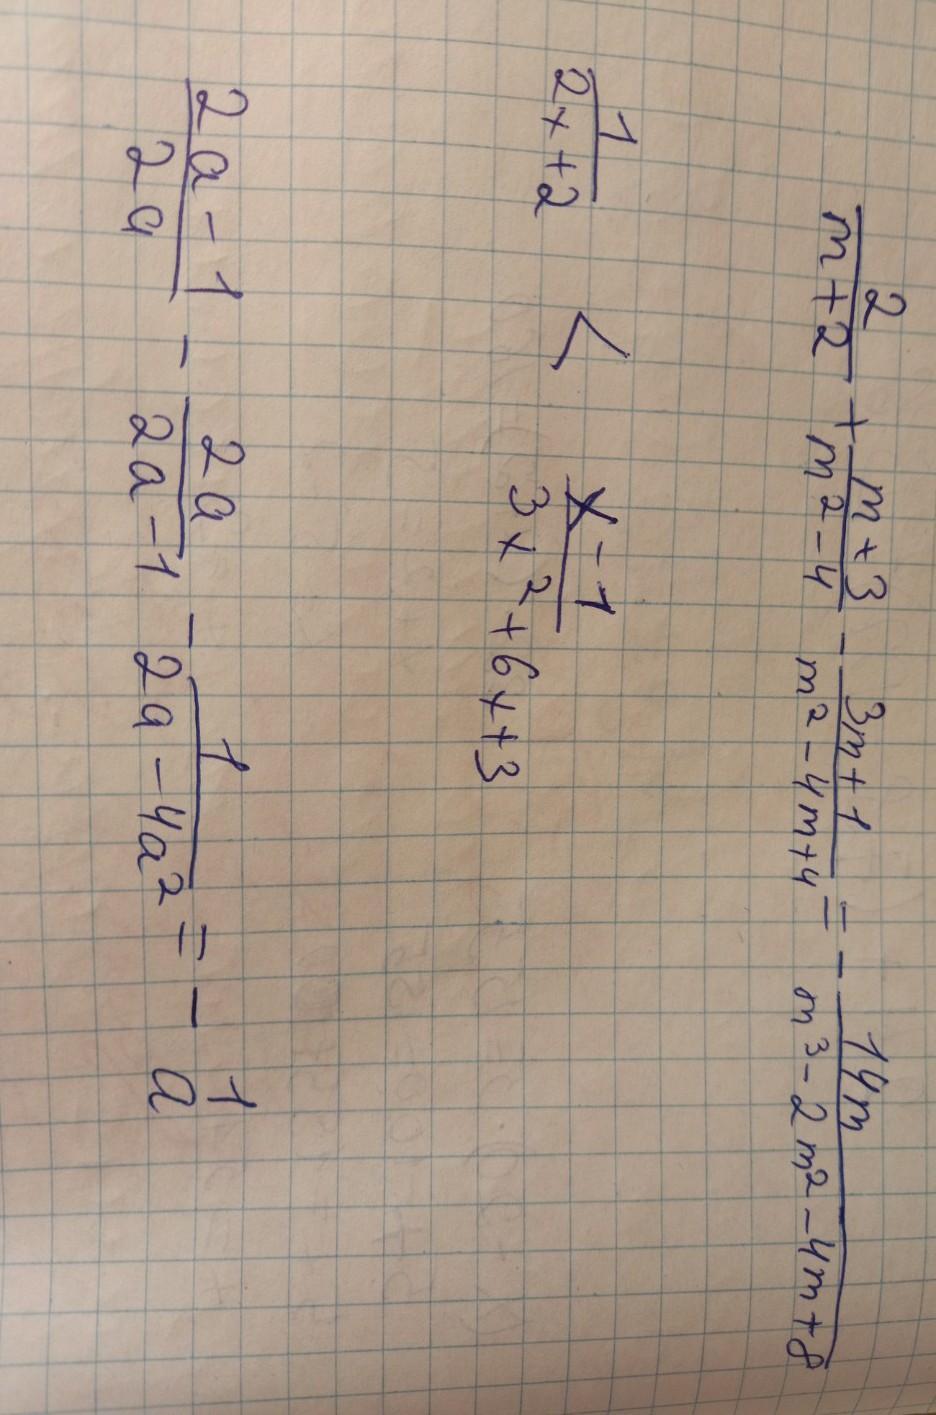 2/(m+2) + (m+3)/(m²-4) - (3m+1)/(m²-4m+4) = - 14m/(m³-2m²-4m+8)
1/(2x+2) < (x-1)/(3x²+6x+3)
(2a-1)/(2a) - 2a/(2a-1) - 1/(2a-4a²) = - 1/a